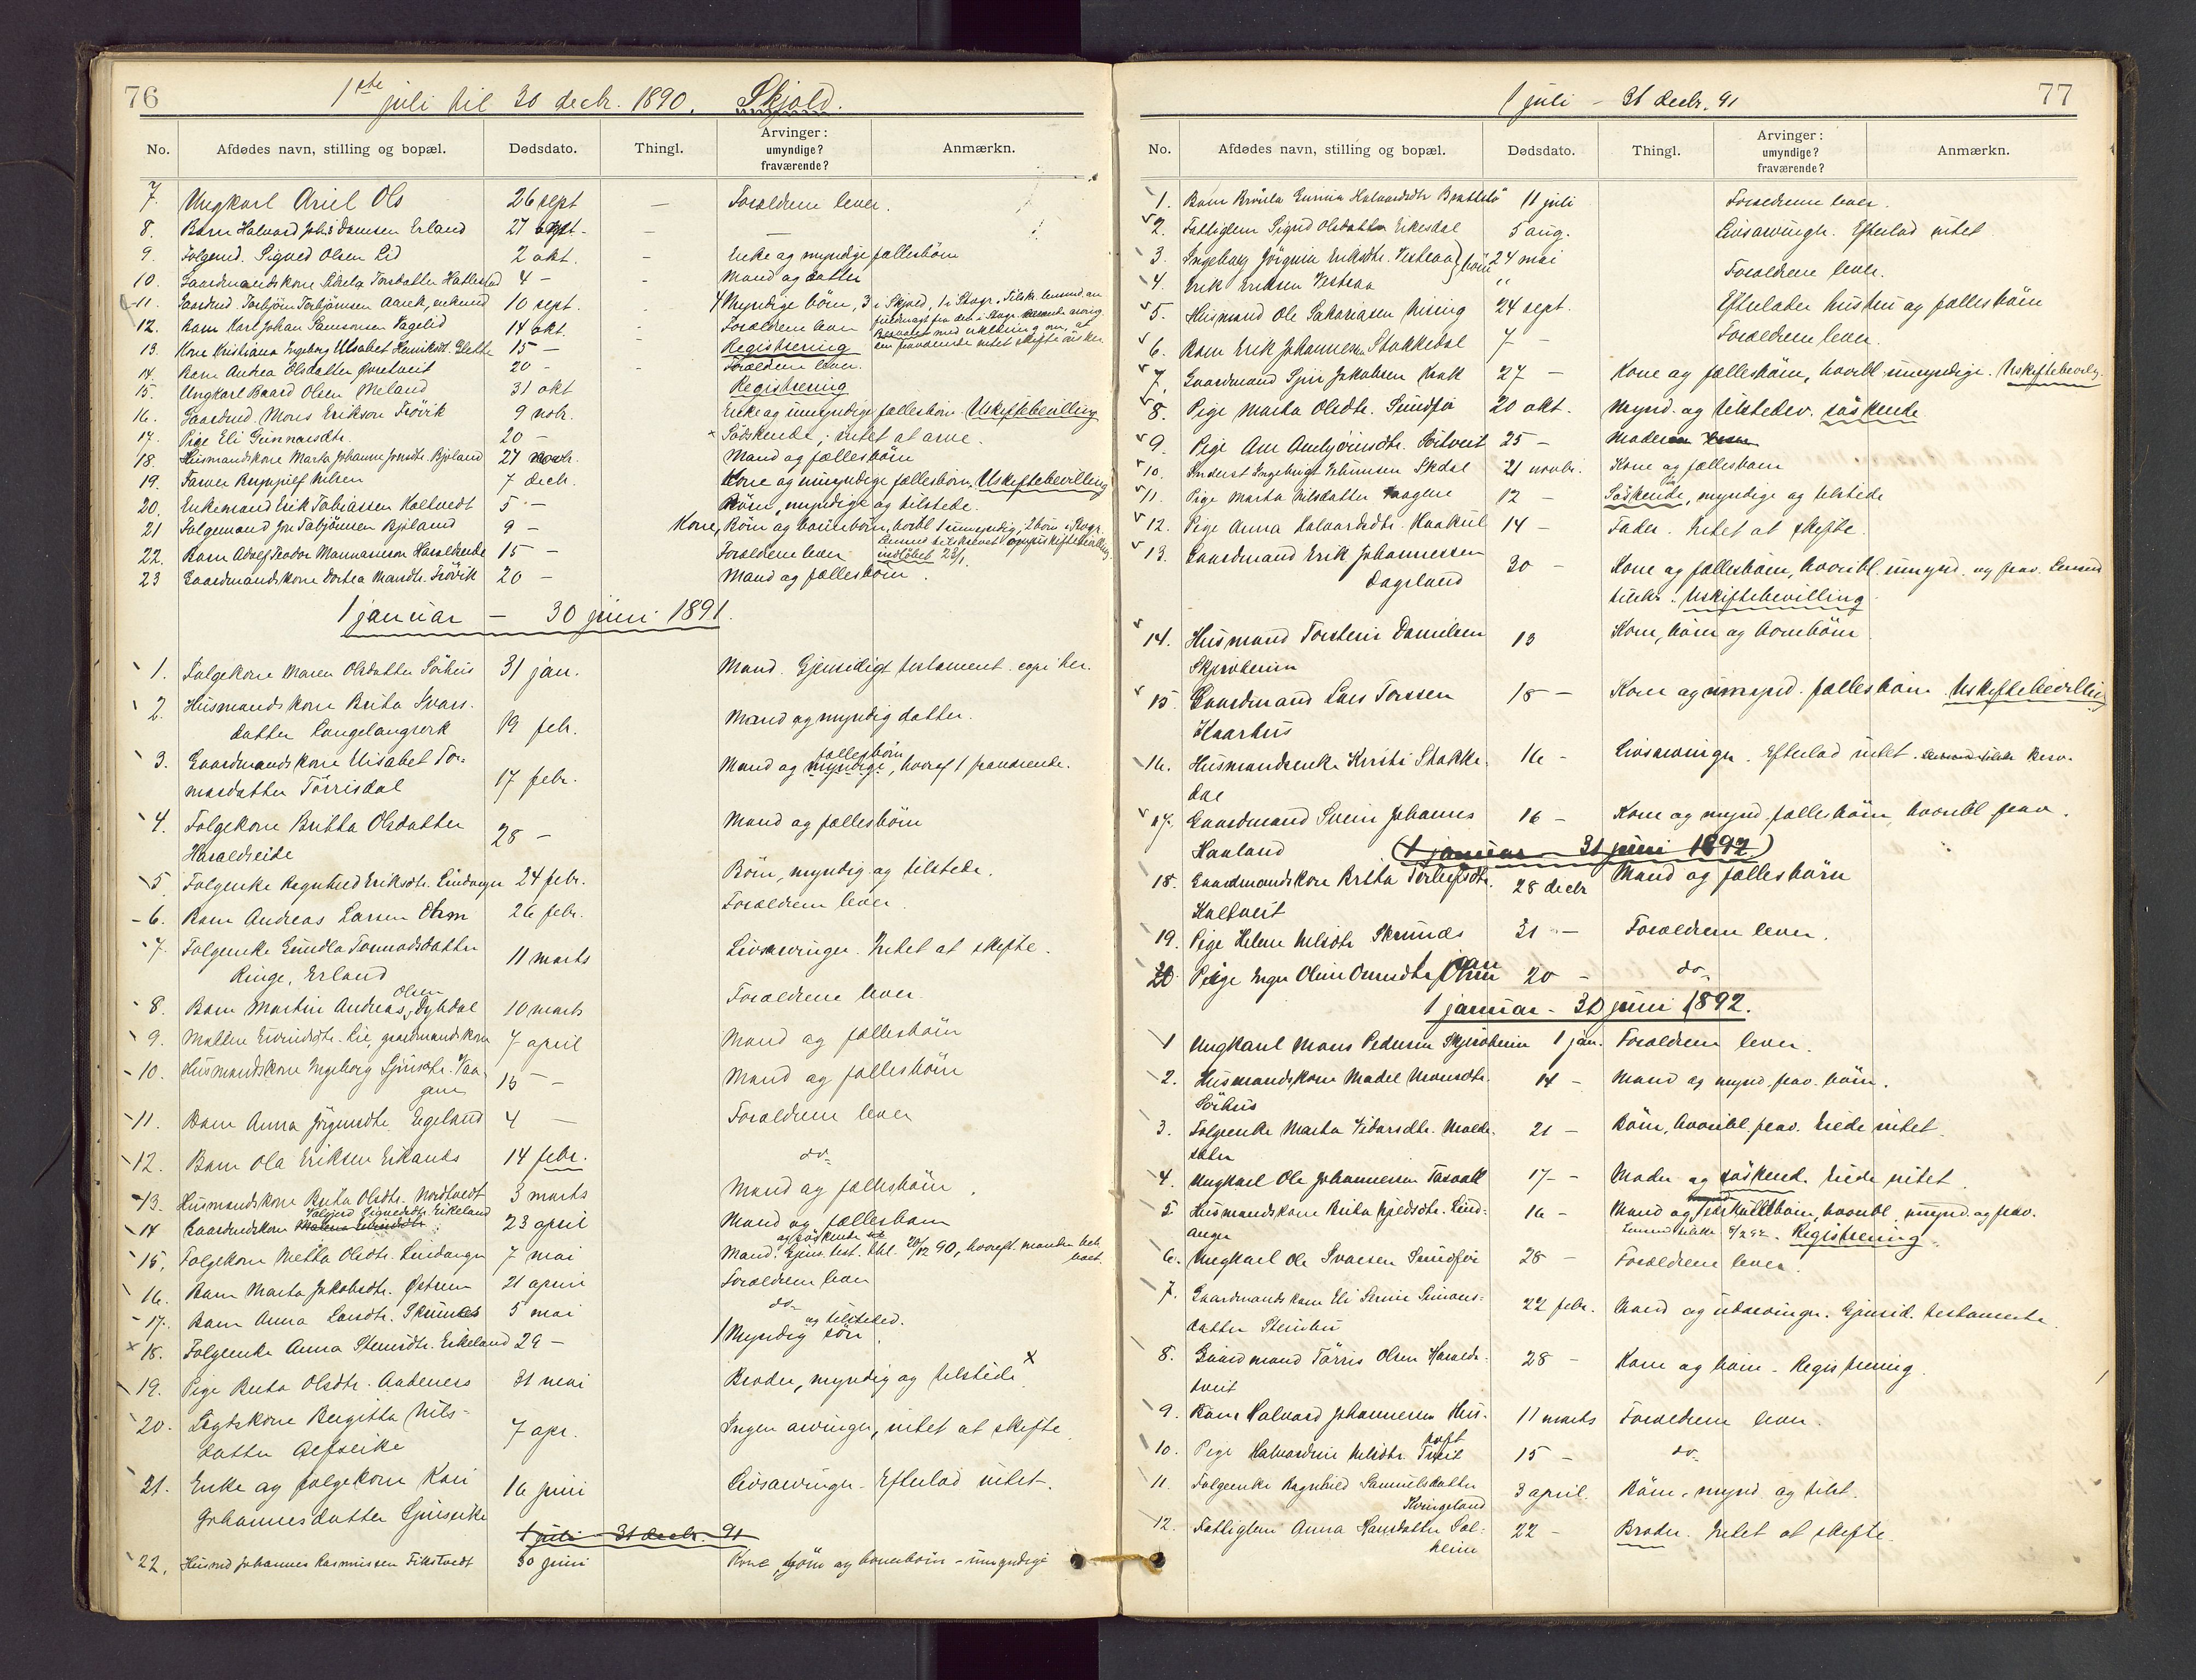 76
1ste juli til 30 decbr. 1890. Skjold.
No. Afdødes navn, stilling og bopæl. Dødsdato. Thingl. Arvinger: umyndige? fraværende? Anmærkn.
7. Ungkarl Ariel Ols 26 sept — Forældrene lever.
8. Barn Halvard Johs Damsen Erland 27 sept. — —
9. Folgemd. Sigved Olsen Lid 2 okt. - Enke og myndige fællesbörn
10. Gaardmandskone Torsdatter 4 - - Mand og datter
11. Gaardmd. Torbjörn Torbjörnsen Aarek, enkemd 10 sept. - 4 Myndige börn, 3 i Skjold, 1 i Stavgr.
12. Barn Karl Johan Samsonsen Vagelid 14 okt. - Forældrene lever
13. Kone Kristiana Ingeborg Elisabet Henriksdt. Slette 15 — - Registrering
14. Barn Andrea Olsdatter Øvretveit 20 - - Forældrene lever.
15. Ungkarl Baard Olsen Meland 31 okt Registrering
16. Gaardmd. Mons Erikson Frövik 9 novbr. Enke og umyndige fællesbörn. Uskiftebevilling
17. Pige Eli Gunnarsdtr. 20 — × Södskende; intet at arve.
18. Husmandskone Marta Johanne Jonsdtr. Bjoland 27 novbr. Mand og fællesbörn
19. Farver Nilsen 7 decbr. Kone og umyndige fællesbörn. Uskiftebevilling
20. Enkemand Erik Tobiassen Kaltvedt 5 - Börn, myndige og tilstede.
21 Folgemand Jon Torbjörnsen Bjoland 9 — Kone, Börn og barnebörn, hvoribl 1 umyndig; 2 börn i Stavgr.
22. Barn Adolf Teodor Mannassen Haraldseide 15 — Forældrene lever indlöbet 23/1.
23 Gaardmandskone Dortea Monsdtr. Frövik 20 — Mand og fællesbörn.
1 januar — 30 juni 1891.
1. Folgekone Maren Olsdatter Sörhus 31 jan. Mand. Gjensidigt testament. her.
2. Husmandskone Brita Ivars-
datter Langelangserk 19 febr. Mand og myndig datter.
3. Gaardmandskone Elisabet Tor-
marsdatter Törrisdal 17 febr. Mand og myndige fællesbörn, hvoraf 1 fraværende.
4. Folgekone Britta Olsdatter
Haraldseide 28 — Mand og fællesbörn
5. Folgenke Ragnhild Eriksdtr. Lindanger 24 febr. Börn, myndig og tilstede.
6. Barn Andreas Larsen Ohm 26 febr. Forældrene lever.
7. Folgenke Gundla Tormodsdatter
Ringe, Erland 11 marts Livsarvinger. Intet at skifte.
8. Barn Martin Andreas Olsen Dybdal 10 marts Forældrene lever.
9. Malene Lie, gaardmandskone 7 april Mand og fællesbörn
10. Husmandskone Ingeborg Vaa-
gen 15 — Mand og fællesbörn
11. Barn Anna Jörgensdtr. Egeland 4 — Forældrene lever
12. Barn Ola Eriksen Eikanes 14 febr. do.
13. Husmandskone Brita Olsdtr. Nordtvedt 3 marts Mand og fællesbörn.
14 Gaardmdskone Valgjerd Sigvedsdtr. Eikeland 23 april Mand og fællesbarn
15. Folgekone Metta Olsdtr. Lindanger 7 mai Mand. Gjens. test. thl. 20/12 90, hvoreft. manden beh. boet.
16. Barn Marta Jakobsdtr. Östrem 21 april Forældrene lever
17. Barn Anna Larsdtr. Skrunes 5 mai do.
× 18. Folgenke Anna Stensdtr. Eikeland 29 — 1 Myndig og tilsteded. sön.
19. Pige Berta Olsdtr. Aabenes 31 mai Broder, myndig og tilstede ×
20. Lægdskone Bergitta Nils-
datter Alfseike 7 apr. Ingen arvinger, intet at skifte
21. Enke og folgekone Kari
Johannesdatter 16 juni Livsarvinger. Efterlod intet.
1 juli - 31 decbr. 91
22. Husmd Johannes Rasmussen Fikstvedt 30 juni Kone, börn og barnebörn - umyndige
77
1 juli — 31 decbr. 91
No. Afdødes navn, stilling og bopæl. Dødsdato. Thingl. Arvinger: umyndige? fraværende? Anmærkn.
1. Barn Halvardsdtr Brattetö 11 juli Forældrene lever.
2. Fattiglem Sigrid Olsdatter Eikesdal 5 aug. Livsarvinger. Efterlod intet
3. Ingeborg Jörgine Eriksdtr. Vestraa } börn 24 mai
4. Erik Eriksen Vestraa " Forældrene lever.
5. Husmand Ole Sakariasen 24 sept. Efterlader hustru og fællesbörn
6. Barn Erik Johannesen Stakkedal 7 - Forældrene lever.
7. Gaardmand Jakobsen 27 — Kone og fællesbörn, hvoribl. umyndige. Uskiftebevilg.
8. Pige Marta Olsdtr. Sundför 20 okt. Mynd. og tilstedev. söskende
9. Pige Ane Ambjörnsdtr. 25 — Moderen
10. Inderst Ingebrigt 21 novbr. Kone og fællesbarn
11. Pige Marta Nilsdatter Vaagene 12 — Söskende, myndige og tilstede
12. Pige Anna Halvardsdtr. 14 — Fader. Intet at skifte.
13. Gaardmand Erik Johannessen
Dagsland 30 — Kone og fællesbörn, hvoribl. umynd. og frav. Lensmd
tilskr. Uskiftebevilling.
14. Husmand Torstein Danielsen
Skjroheim 13 Kone, börn og barnebörn
15. Gaardmand Lars Torssen
Kaarhus 18 — Kone og umynd. fællesbörn Uskiftebevilling
16. Husmandsenke Kristi Stakke-
dal 16 — Livsarvinger. Efterlod intet.
17. Gaardmand Svein Johannes
Hauland 16 — Kone og mynd. fællesbörn, hvoribl frav.
(1 januar — 31 juni 1892)
18. Gaardmandskone Britha Torleifsdtr.
Kaltveit 28 decbr Mand og fællesbörn
19. Pige Helene Nilsdtr Skrunes 31 — Forældrene lever.
20. Pige Inger Oline Ohm 20 — do.
1 januar - 30 juni 1892.
1 Ungkarl Mons Pedersen Skjroheim 1 jan. Forældrene lever.
2. Husmandskone Madel Monsdtr.
Sörhus 14 — Mand og mynd. frav. börn.
3. Folgenke Marta Vidarsdtr. Molde-
21 — Börn, hvoribl. frav. Eiede intet.
4. Ungkarl Ole Johannesen 17 - Moder og söskend. Eiede intet.
5. Husmandskone Brita Kjeldsdtr. Lind-
anger 16 — Mand og börn, hvoribl. umynd. og frav.
Registrering.
6. Ungkarl Ole Ivarsen Sundför 28 — Forældrene lever.
7. Gaardmandskone Eli Serine Simons-
datter 22 febr. Mand og udarvinger. Gjensid. testamente.
8. Gaardmand Törris Olsen Haralds-
tveit 28 — Kone og börn - Registrering.
9. Barn Halvard Johannesen Hus-
toft 11 marts Forældrene lever.
10. Pige Halvardine Nilsdtr. Tveit 15 — do.
11. Folgenke Ragnhild Samuelsdatter
Kvingeland 3 april. Börn, mynd. og tilst.
12. Fattiglem Anna Hansdatter Sol-
heim 22 — Broder. Intet at skifte.